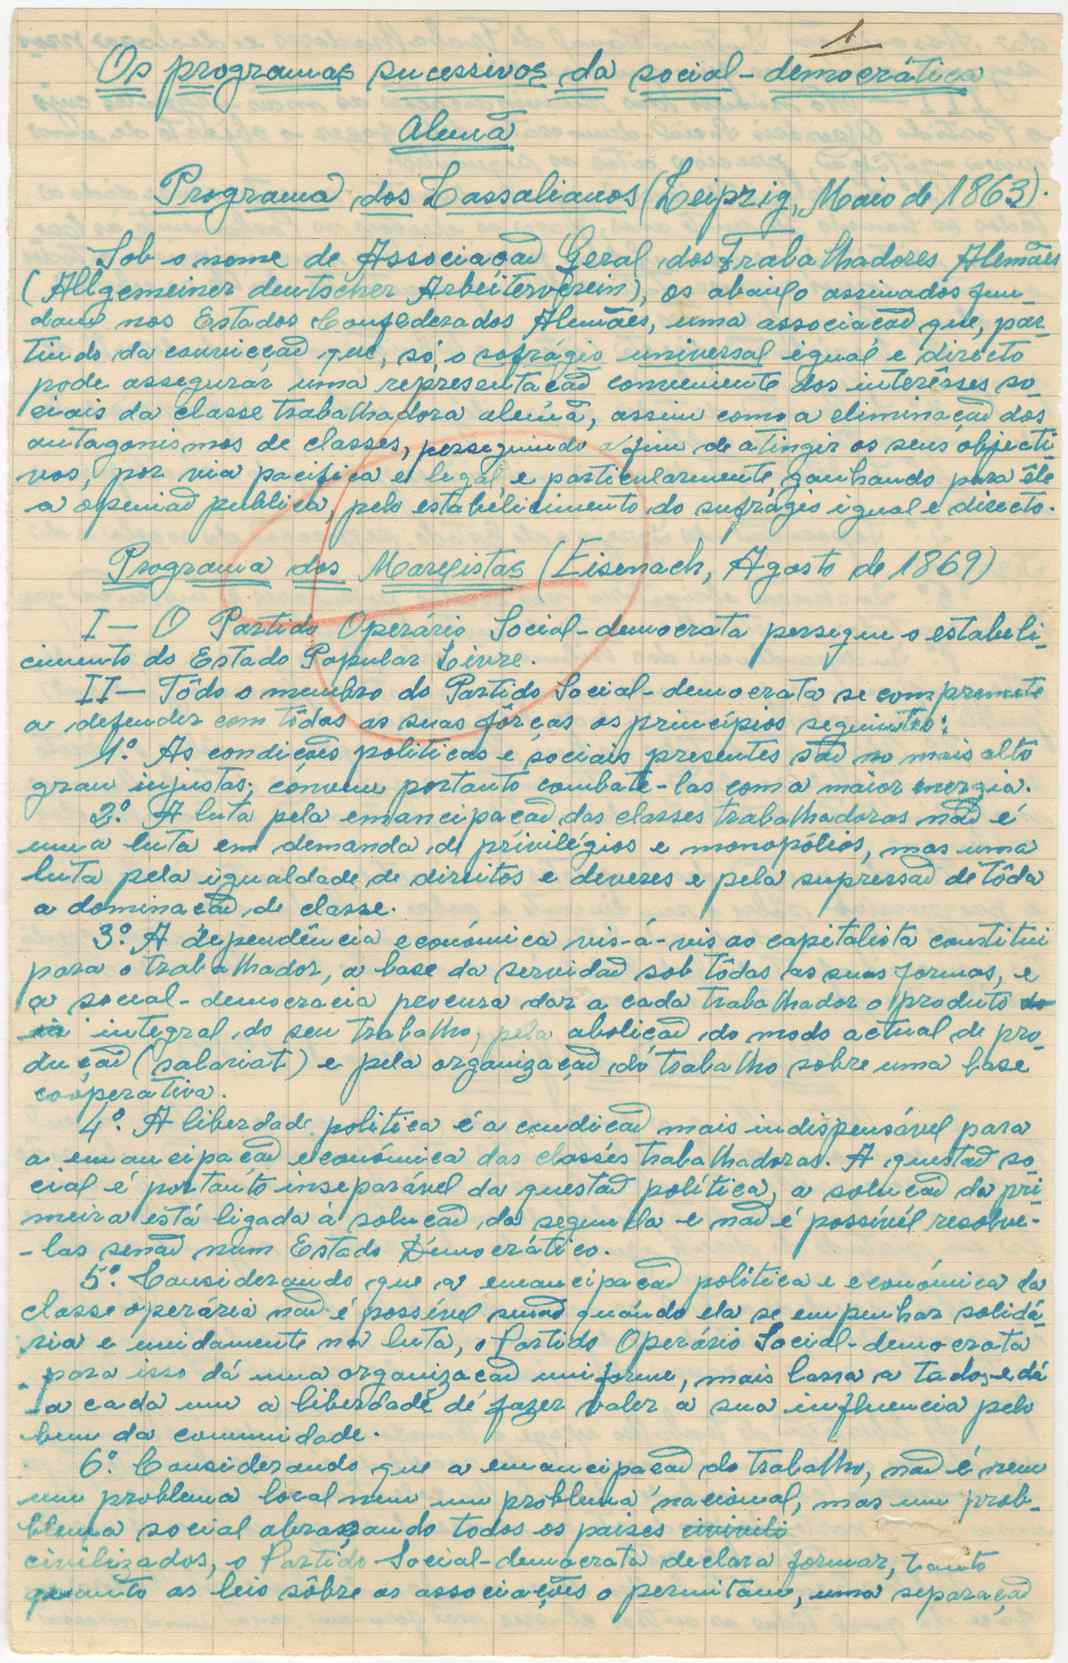 1
Os programas sucessivos da social-democrática
Alemã
Programa dos Lassalianos (Leipzig, Maio de 1863).
Sob o nome de Associação Geral dos Trabalhadores Alemães
(Allgemeiner deutscher Arbeiterverein), os abaixo assinados fun-
dam nos Estados Confederados Alemães, uma associação que, par-
tindo da convicção que, só o sufrágio universal igual e directo
pode assegurar uma representação conveniente dos interêsses so-
ciais da classe trabalhadora alemã, assim como a eliminação dos
antagonismos de classes, perseguindo o fim de atingir os seus objecti-
vos, por via pacifica e legal, e particularmente, ganhando para êle
a openião publica, pelo estabelicimento do sufrágio igual e directo.
Programa dos Marxistas (Eisenach, Agosto de 1869)
I — O Partido Operário Social-democrata persegue o estabeli-
cimento do Estado Popular Livre.
II — Tôdo o membro do Partido Social-democrata se compromete
a defender com tôdas as suas fôrças os princípios seguintes:
1º. As condições politicas e sociais presentes são no mais alto
grau injustas; convem portanto combatê-las com a maior energia.
2º. A luta pela emancipação das classes trabalhadoras não é
uma luta em demanda de privilégios e monopólios, mas uma
luta pela igualdade de direitos e deveres e pela supressão de tôda
a dominação de classe.
3º. A dependência económica vis-á-vis ao capitalista constitui
para o trabalhador, a base da servidão sob tôdas as suas formas, e
a social-democracia procura dar a cada trabalhador o produto do
integral do seu trabalho, pela abolição do modo actual de pro-
dução (salariat) e pela organização do trabalho sobre uma base
cooperativa.
4º. A liberdade politica é a condição mais indispensável para
a emancipação económica das classes trabalhadoras. A questão so-
cial é portanto inseparável da questão política, a solução da pri-
meira está ligada à solução da segunda e não é possível resolve-
-las senão num Estado Democrático.
5º. Considerando que a emancipação politica e económica da
classe operária não é possível senão quando ela se empenhar solidá-
ria e unidamente na luta, o Partido Operário Social-democrata
para isso dá uma organização uniforme, mais lassa a todos e dá
-a cada um a liberdade de fazer valer a sua influencia pelo
bem da comunidade.
6º. Considerando que a emancipação do trabalho, não é nem
um problema local nem um problema nacional, mas um prob-
blema social abrasando todos os paises
civilizados, o Partido Social-democrata declara formar, tanto
quanto as leis sôbre as associações o permitam, uma separação